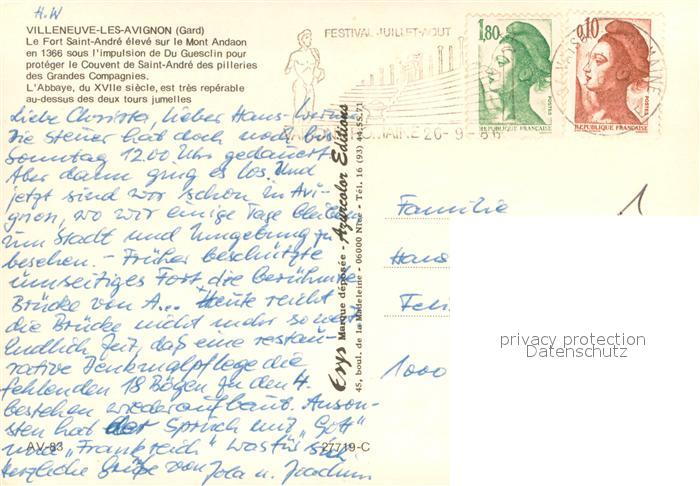 H.W
VILLENEUVE-LES-AVIGNON (Gard)
Le Fort Saint-André élevé sur le Mont Andaon
en 1366 sous l'impulsion de Du Guesclin pour
protéger le Couvent de Saint-André des pilleries
des Grandes Compagnies.
L'Abbaye, du XVIIe siècle, est très repérable
au-dessus des deux tours jumelles
FESTIVAL JUILLET-AOUT
ROMAINE 26-9-86
1,80
POSTES
REPUBLIQUE FRANÇAISE
0,10
POSTES
REPUBLIQUE FRANÇAISE
Liebe Christa, lieber Hans-
Die Steuer hat doch noch bis
Sonntag 12.00 Uhr gedauert.
Aber dann ging es los. Und
jetzt sind wir schon in Avi-
gnon, wo wir einige Tage bleiben
um Stadt und Umgebung zu
besehen. - Früher beschützte
umseitiges Fort die berühmte
Brücke von A... Heute reicht
die Brücke nicht mehr so
endlich Zeit, daß eine restau-
rative Denkmalpflege die
fehlenden 18 Bögen zu den 4
bestehen wiederaufbaut. Anson-
sten hat der Spruch mit "Gott"
und "Frankreich" was für sich
herzliche Grüße von Jola u. Joachim
AV-83
27719-C
Erys Marque déposée - Azurcolor Editions
45, boul. de la Madeleine - 06000 Nice - Tél. 16 (93) 44.55.71
Familie
Hans
1000
1
privacy protection
Datenschutz